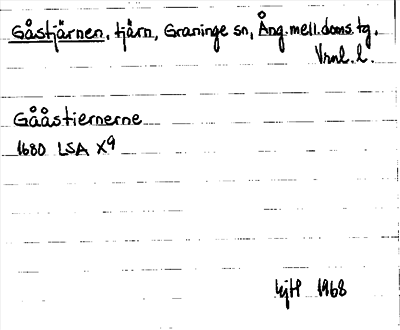 Gåstjärnen, tjärn, Graninge sn, Ång. mell. doms. tg.
Vrnl. l.
Gååstiernerne
1680 LSA X9
HjH 1968